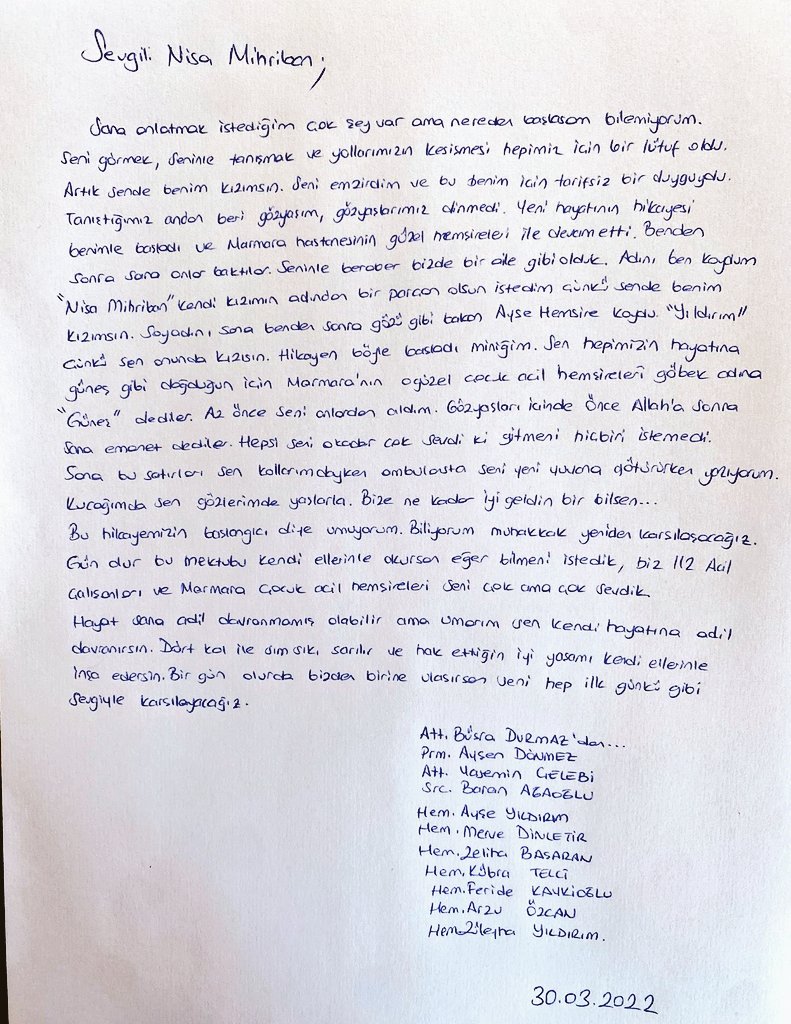 Sevgili Nisa Mihriban;
Sana anlatmak istediğim çok şey var ama nereden başlasam bilemiyorum.
Seni görmek, seninle tanışmak ve yollarımızın kesişmesi hepimiz için bir lütuf oldu.
Artık sende benim kızımsın. Seni emzirdim ve bu benim için tarifsiz bir duyguydu.
Tanıştığımız andan beri gözyaşım, gözyaşlarımız dinmedi. Yeni hayatının hikayesi
benimle başladı ve Marmara hastanesinin güzel hemşireleri ile devam etti. Benden
sonra sana onlar baktılar. Seninle beraber bizde bir aile gibi olduk. Adını ben koydum
"Nisa Mihriban" kendi kızımın adından bir parçan olsun istedim çünkü sende benim
kızımsın. Soyadını sana benden sonra gözü gibi bakan Ayşe Hemşire koydu "Yıldırım"
çünkü sen onunda kızısın. Hikayen böyle başladı miniğim. Sen hepimizin hayatına
güneş gibi doğduğun için Marmara'nın o güzel çocuk acil hemşireleri göbek adına
"Güneş" dediler. Az önce seni onlardan aldım. Gözyaşları içinde Önce Allah'a sonra
sana emanet dediler. Hepsi seni okadar çok sevdi ki gitmeni hiçbiri istemedi.
Sana bu satırları sen kollarımdayken ambulansta seni yeni yuvana götürürken yazıyorum.
Kucağımda sen gözlerimde yaşlarla. Bize ne kadar iyi geldin bir bilsen...
Bu hikayemizin başlangıcı diye umuyorum. Biliyorum muhakkak yeniden karşılaşacağız.
Gün olur bu mektubu kendi ellerinle okursan eğer bilmeni istedik, biz 112 Acil
çalışanları ve Marmara Çocuk acil hemşireleri seni çok ama çok sevdik.
Hayat sana adil davranmamış olabilir ama umarım sen kendi hayatına adil
davranırsın. Dört kol ile sımsıkı sarılır ve hak ettiğin iyi yaşamı kendi ellerinle
inşa edersin. Bir gün olurda bizden birine ulaşırsan seni hep ilk günkü gibi
sevgiyle karşılayacağız.
Att. Büşra DURMAZ'dan...
Prm. Ayşen DÖNMEZ
Att. Yasemin ÇELEBİ
Src. Baran AĞAOĞLU
Hem. Ayşe YILDIRIM
Hem. Merve DİNLETİR
Hem. Zeliha BAŞARAN
Hem. Kübra TELCİ
Hem. Feride KAYIKÇIOĞLU
Hem. Arzu ÖZCAN
Hem. Züleyha YILDIRIM.
30.03.2022